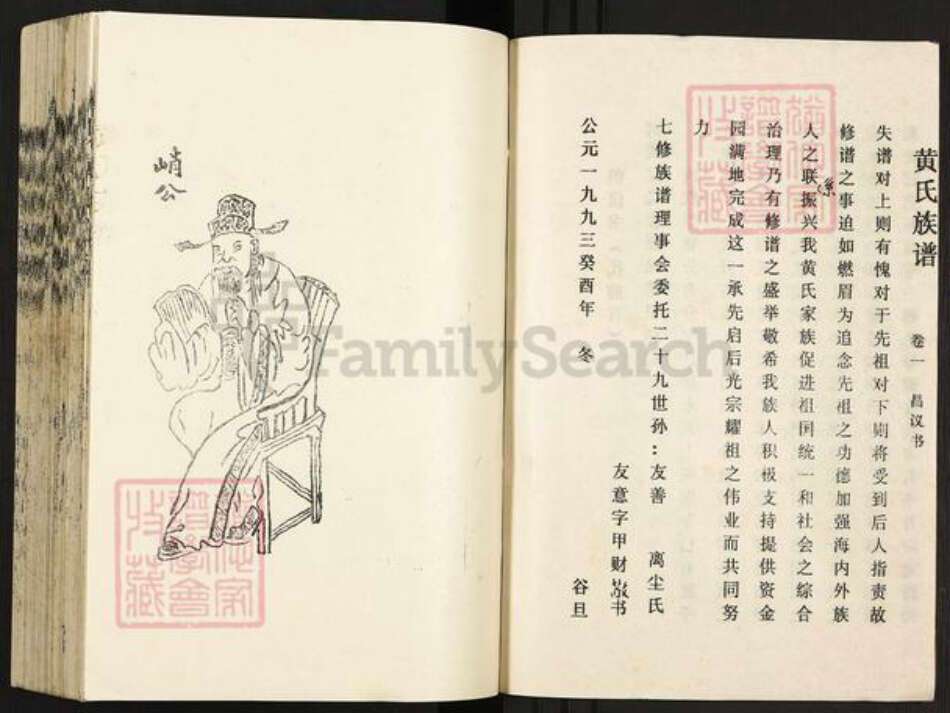 黄氏族谱 卷一 昌议书
失谱对上则有愧对于先祖对下则将受到后人指责故
修谱之事迫如燃眉为追念先祖之功德加强海内外族
人之联系振兴我黄氏家族促进祖国统一和社会之综合
治理乃有修谱之盛举敬希我族人积极支持提供资金
园满地完成这一承先启后光宗耀祖之伟业而共同努
力
七修族谱理事会委托二十九世孙:友善 离尘氏
友意字甲财敬书
公元一九九三癸酉年 冬 谷旦
峭公
FamilySearch